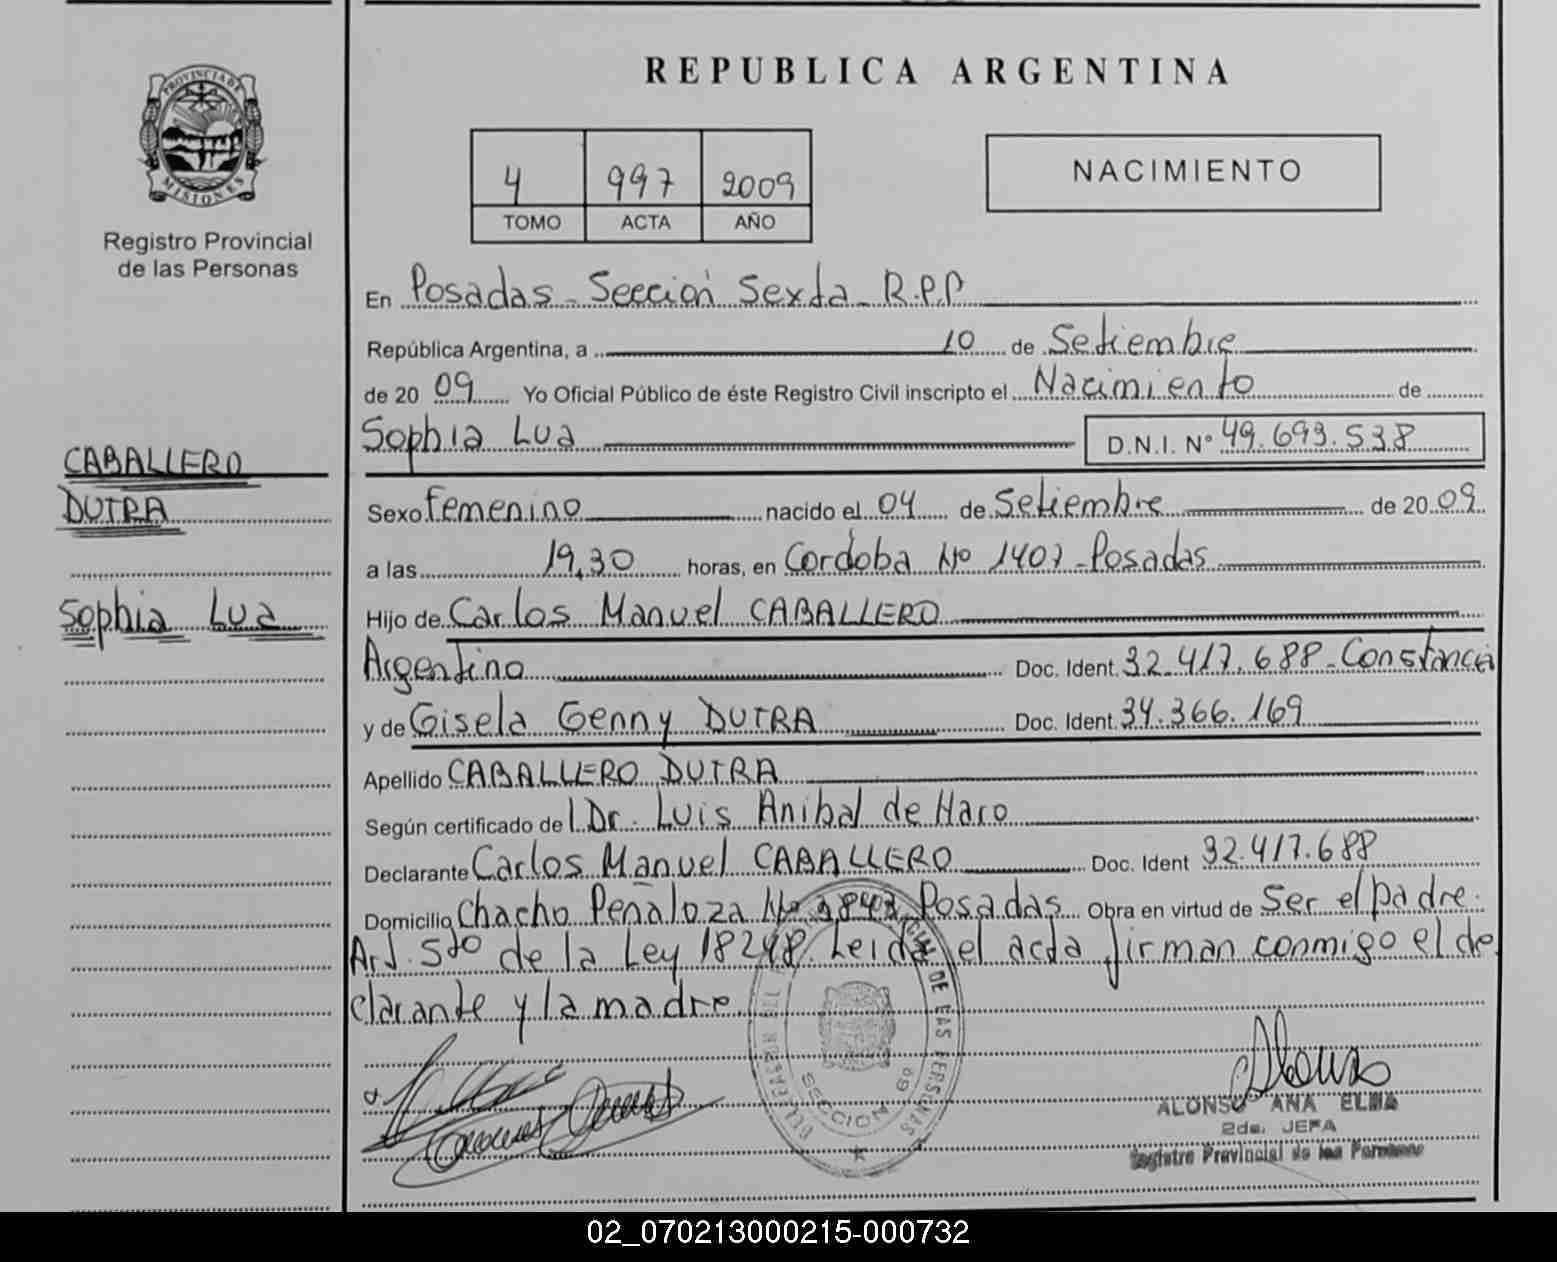 REPUBLICA ARGENTINA
PROVINCIA DE MISIONES
Registro Provincial
de las Personas
4 997 2009
TOMO ACTA AÑO
NACIMIENTO
En Posadas - Sección Sexta - R.P.P
República Argentina, a 10 de Setiembre
de 20 09 Yo Oficial Público de éste Registro Civil inscripto el Nacimiento de
Sophia Lua D.N.I. Nº 49.693.538
CABALLERO
DUTRA
Sophia Lua
Sexo femenino nacido el 04 de Setiembre de 20 09
a las 19,30 horas, en Cordoba Nº 1407 - Posadas
Hijo de Carlos Manuel CABALLERO
Argentino Doc. Ident. 32.417.688 - Constancia
y de Gisela Genny DUTRA Doc. Ident. 34.366.169
Apellido CABALLERO DUTRA
Según certificado del Dr. Luis Anibal de Haro
Declarante Carlos Manuel CABALLERO Doc. Ident 32.417.688
Domicilio Chacho Peñaloza Nº Posadas Obra en virtud de Ser el padre.
Art. 5to de la Ley 18248. Leida el acta firman conmigo el de
clarante y la madre.
DE LAS PERSONAS
SECCION 6º
ALONSO ANA ELMA
2da. JEFA
Registro Provincial de las Personas
02_070213000215-000732